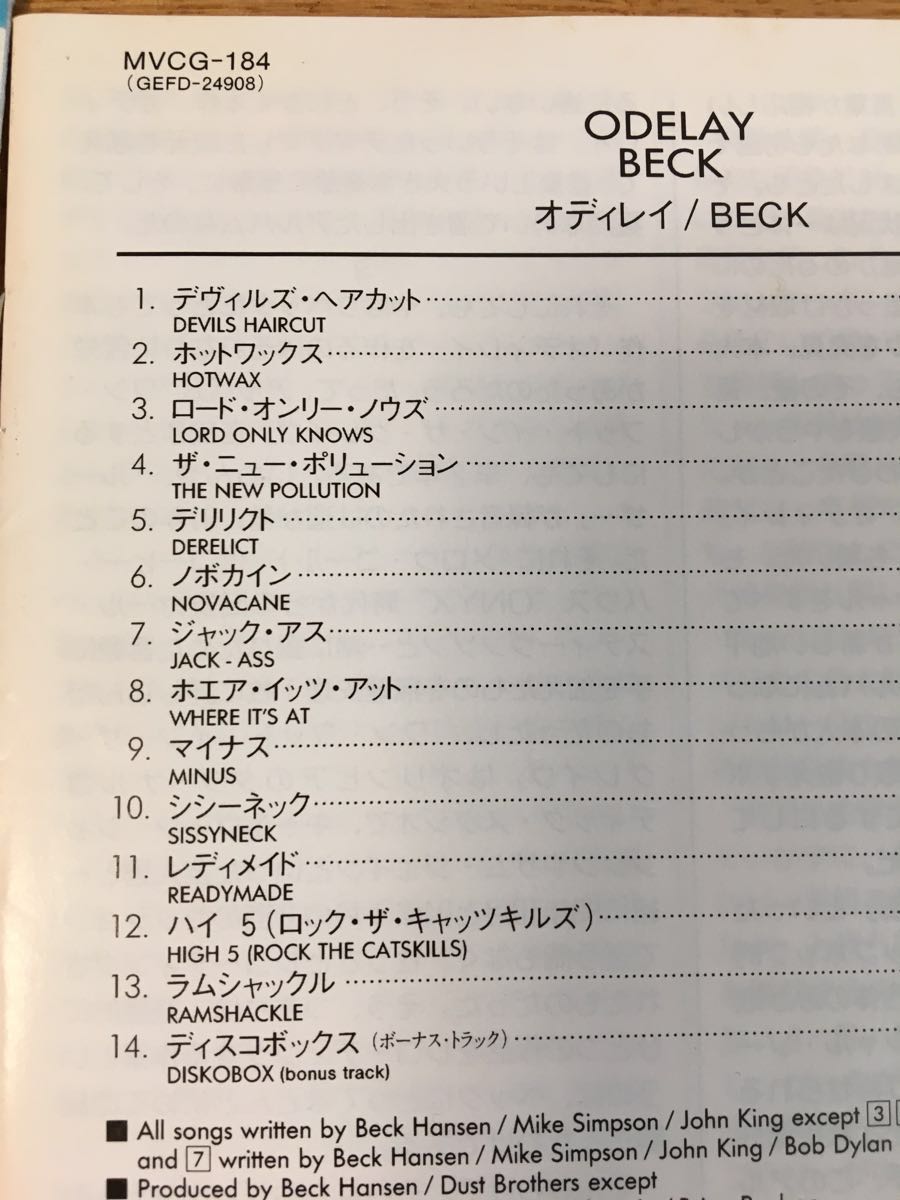 MVCG-184
(GEFD-24908)
ODELAY
BECK
オディレイ / BECK
1. デヴィルズ・ヘアカット
DEVILS HAIRCUT
2. ホットワックス
HOTWAX
3. ロード・オンリー・ノウズ
LORD ONLY KNOWS
4. ザ・ニュー・ポリューション
THE NEW POLLUTION
5. デリリクト
DERELICT
6. ノボカイン
NOVACANE
7. ジャック・アス
JACK - ASS
8. ホエア・イッツ・アット
WHERE IT'S AT
9. マイナス
MINUS
10. シシーネック
SISSYNECK
11. レディメイド
READYMADE
12. ハイ 5 (ロック・ザ・キャッツキルズ)
HIGH 5 (ROCK THE CATSKILLS)
13. ラムシャックル
RAMSHACKLE
14. ディスコボックス (ボーナス・トラック)
DISKOBOX (bonus track)
■ All songs written by Beck Hansen / Mike Simpson / John King except 3
and 7 written by Beck Hansen / Mike Simpson / John King / Bob Dylan
■ Produced by Beck Hansen / Dust Brothers except